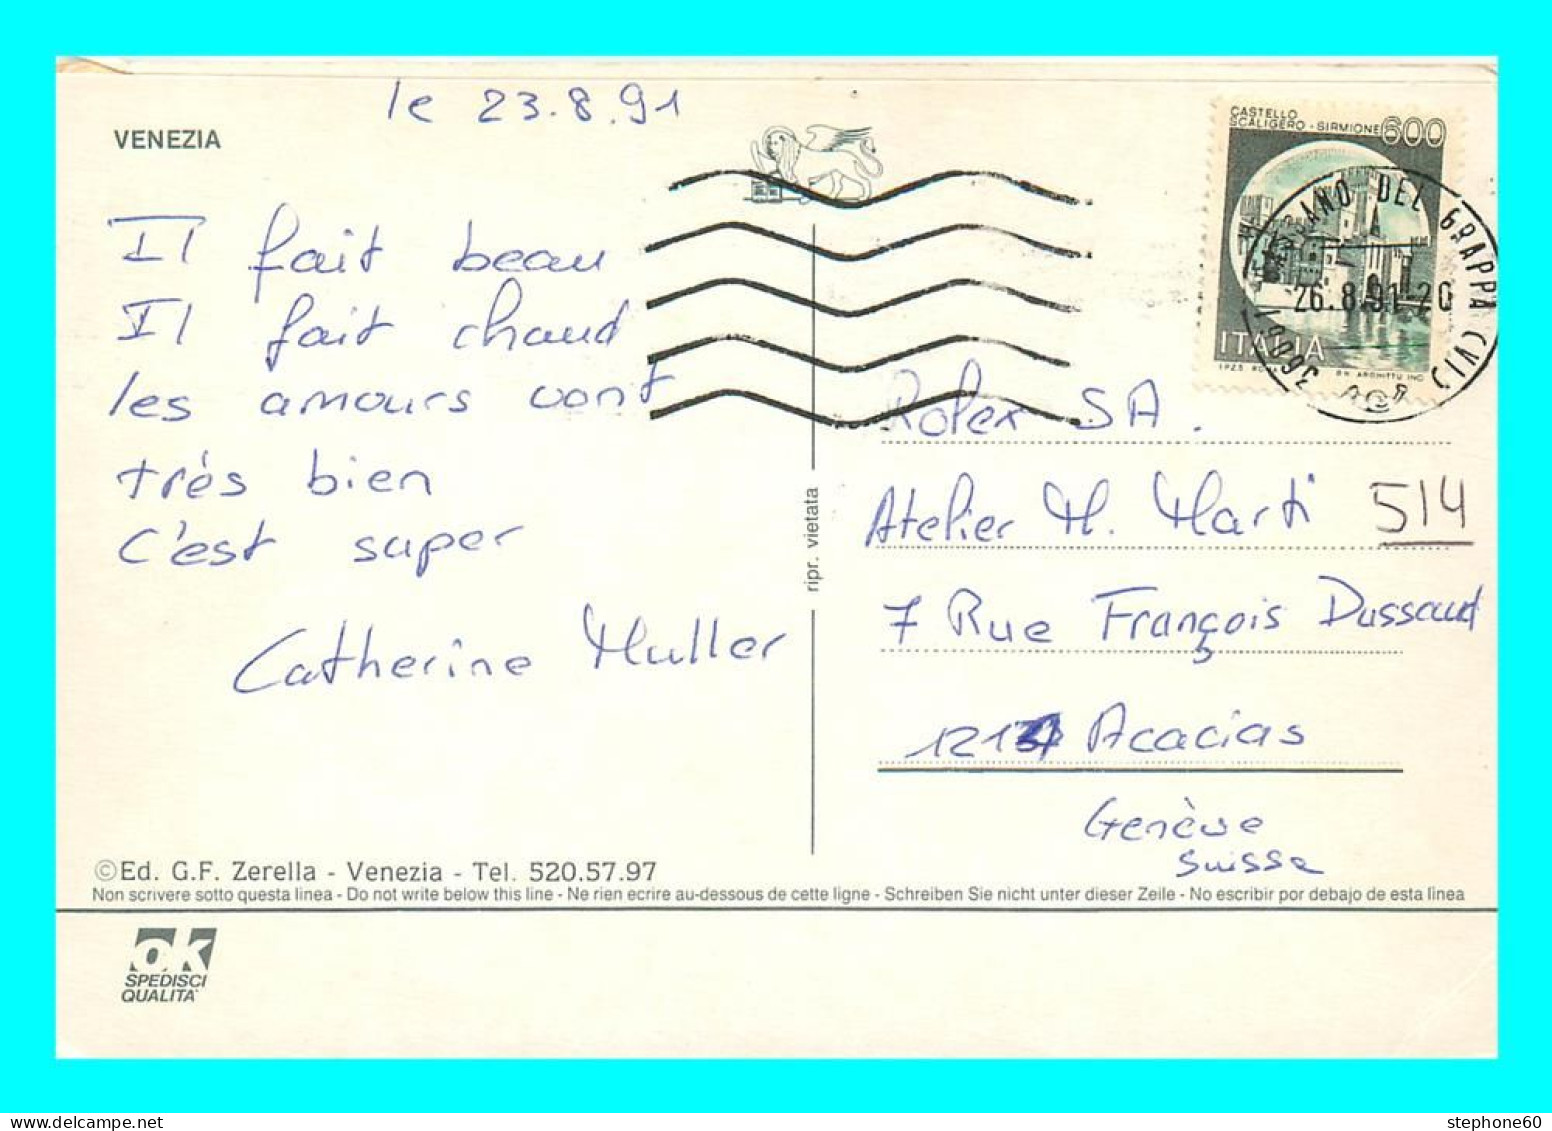 le 23.8.91
VENEZIA
CASTELLO
SCALIGERO - SIRMIONE 600
DEL GRAPPA (VI)
26.8.91-20
36061
ITALIA
Il fait beau
Il fait chaud
les amours vont
très bien
c'est super
Catherine Muller
ripr. vietata
Rolex SA.
Atelier M. Marti 514
7 Rue François Dussaud
Acacias
Genève
Suisse
©Ed. G.F. Zerella - Venezia - Tel. 520.57.97
Non scrivere sotto questa linea - Do not write below this line - Ne rien ecrire au-dessous de cette ligne - Schreiben Sie nicht unter dieser Zeile - No escribir por debajo de esta linea
ok
SPEDISCI
QUALITA'
stephone60